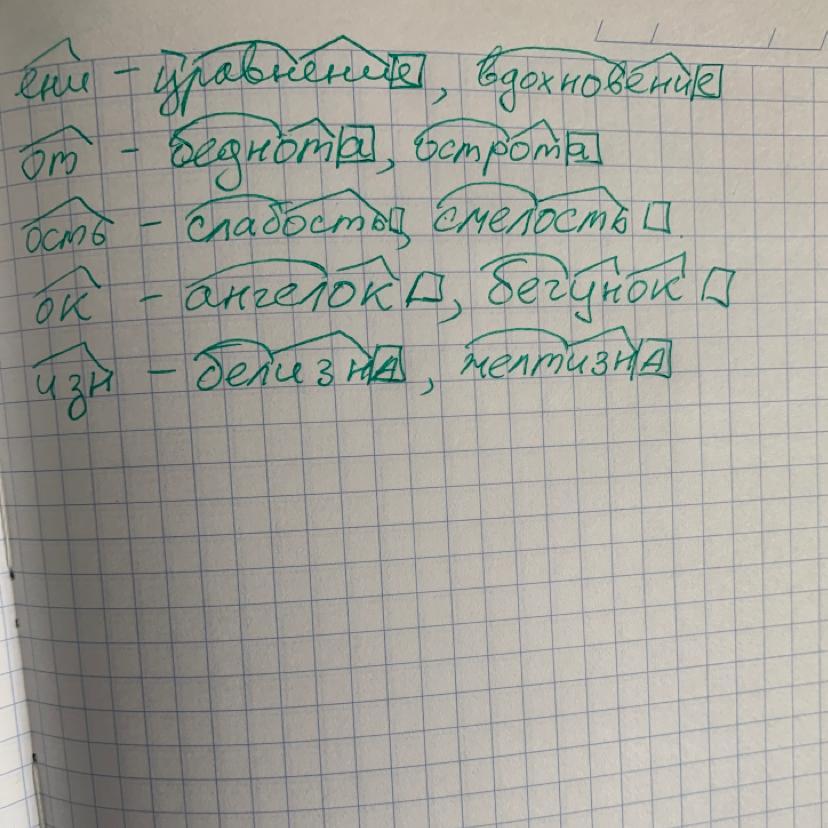 ени - уравнение, вдохновение
от - беднота, острота
ость - слабость, смелость
ок - ангелок, бегунок
изн - белизна, желтизна